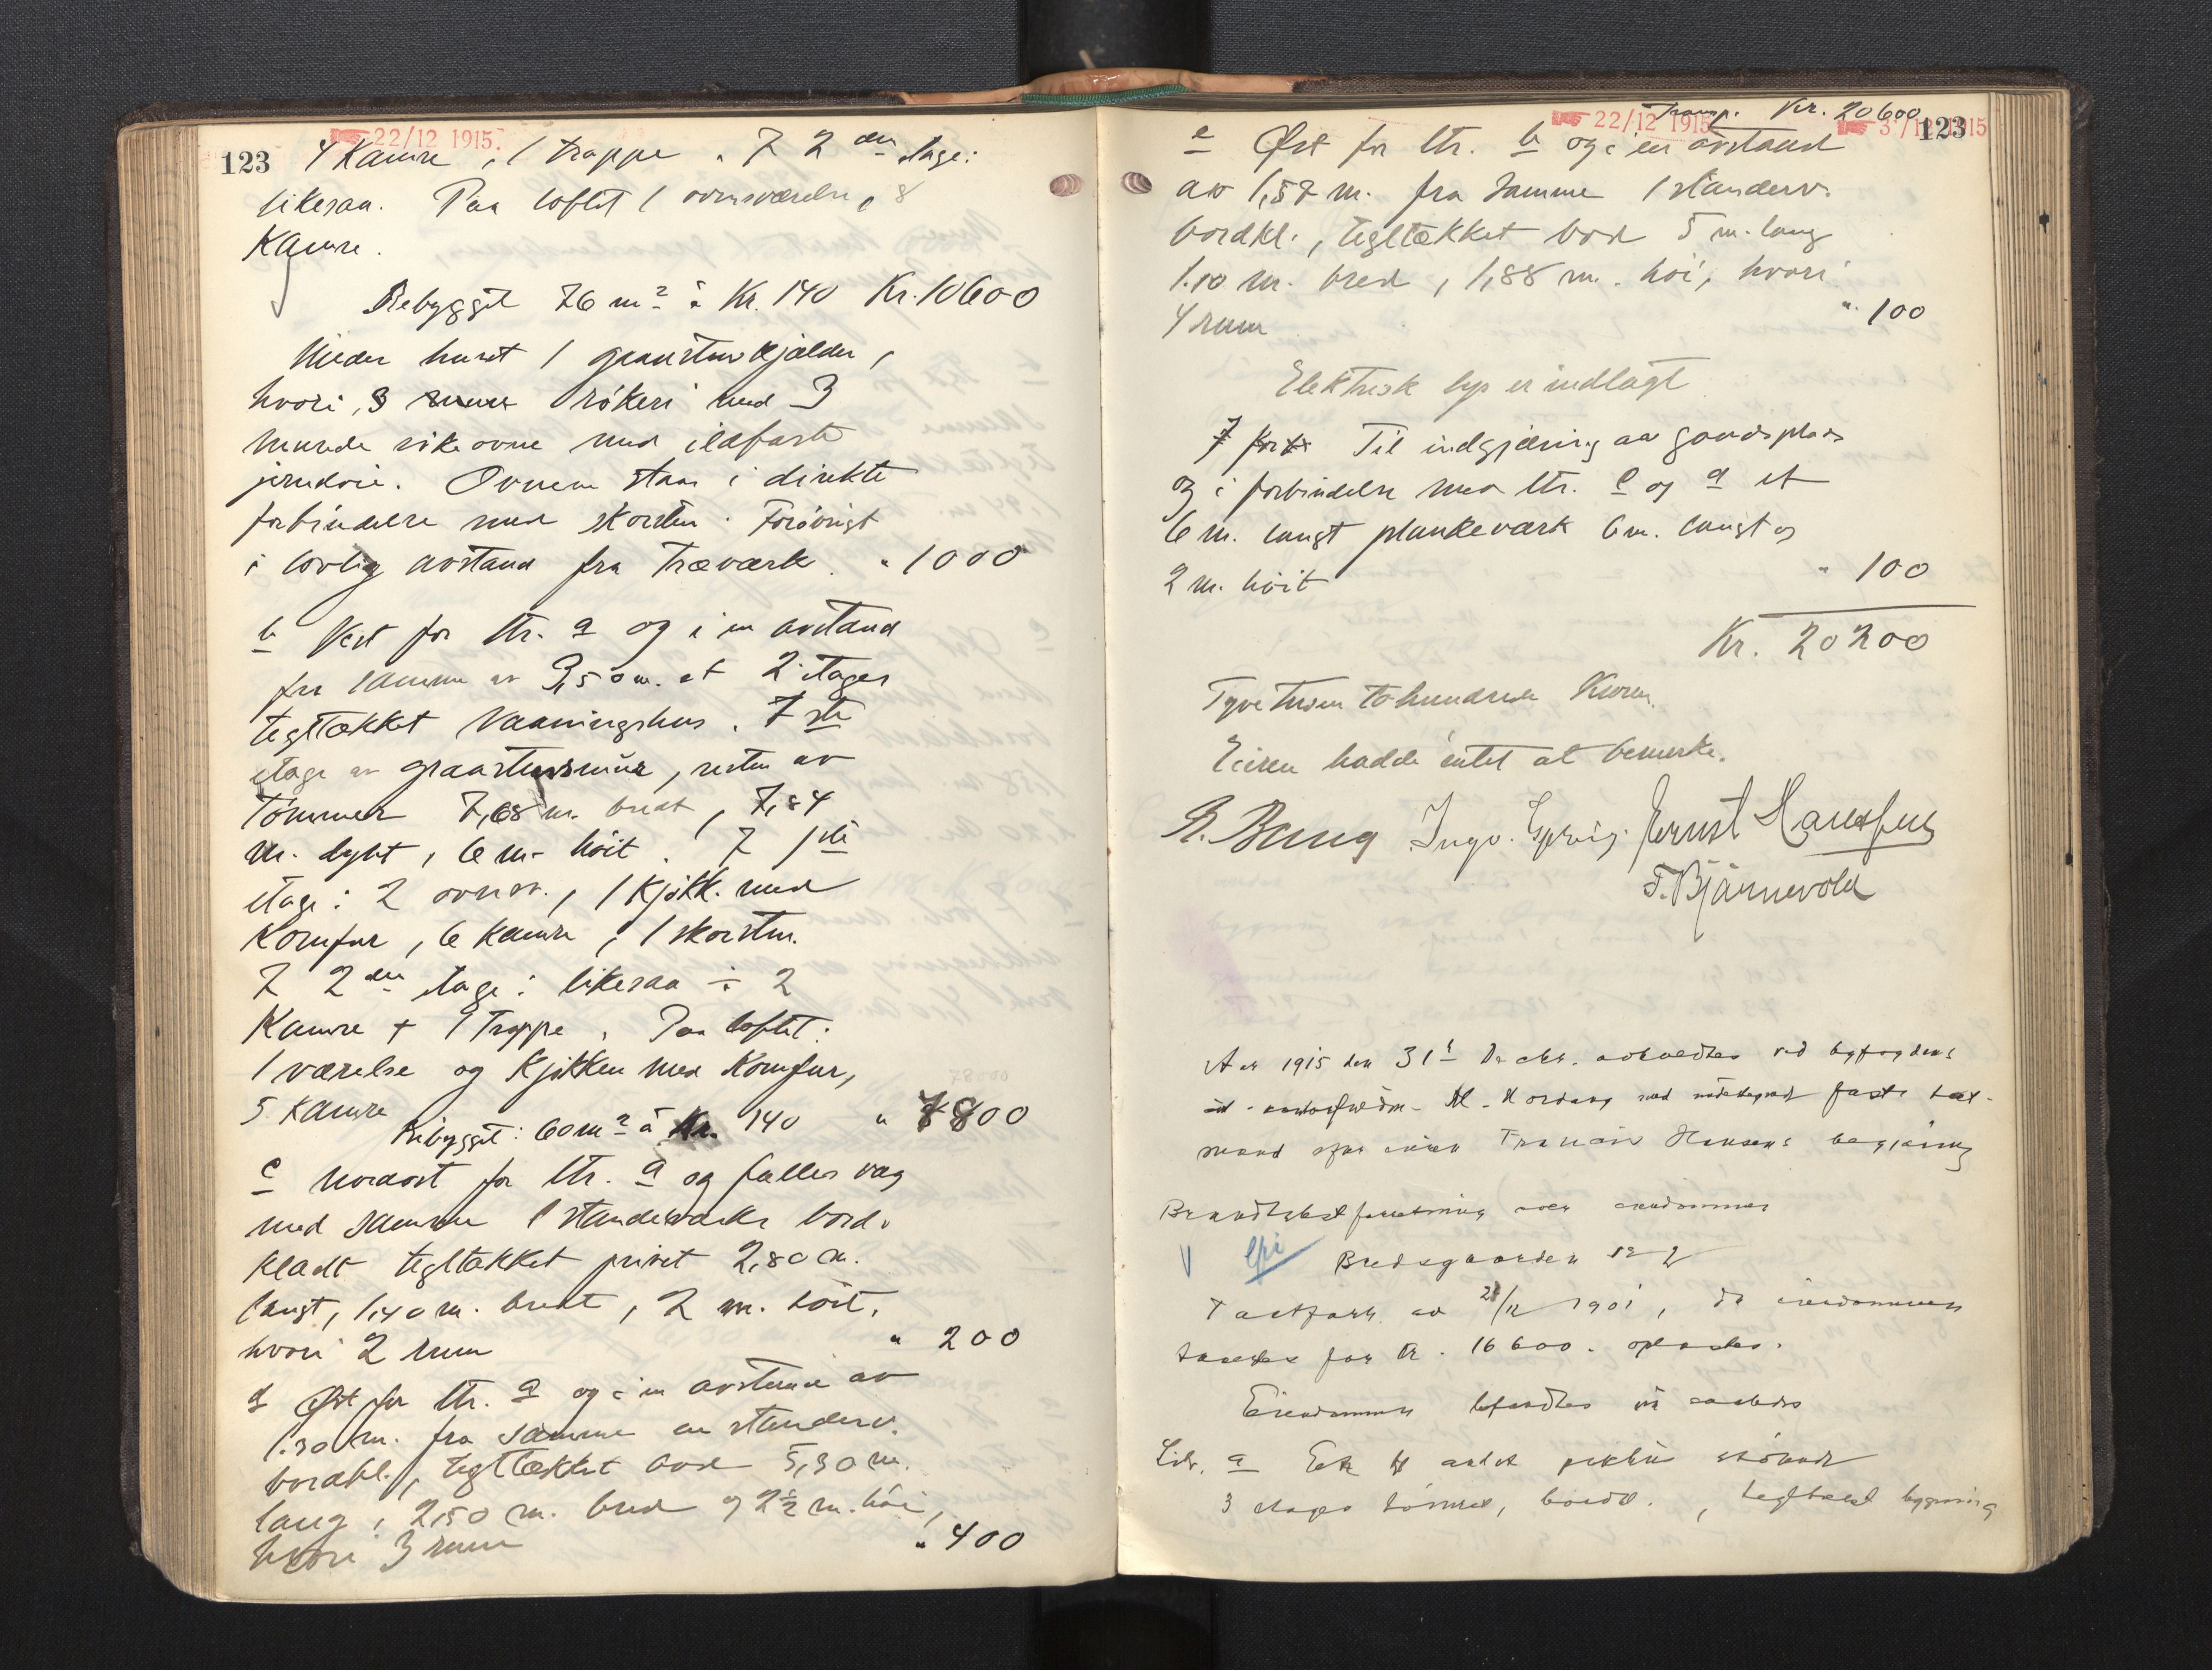 22/12 1915.
123 4 kamre, 1 trappe. I 2den etage:
likesaa. Paa loftet 1 ovnsværelse, 8
kamre.
Bebygget 76 m² à Kr. 140 Kr. 10600
Under huset 1 graastens kjælder,
hvori 3 røkeri med 3
murede røkeovne med ildfaste
jerndøre. Ovnene staar i direkte
forbindelse med skorsten. Forøvrigt
i lovlig avstand fra træværk. " 1000
b Vest for ltr. a og i en avstand
fra samme av 3,50 m. et 2 etages
tegltækket vaaningshus. 1ste
etage av graastensmur, resten av
tømmer 7,68 m. bredt, 7,84
m. dypt, 6 m. høit. I 1ste
etage: 2 ovnsv., 1 kjøkk. med
komfur, 6 kamre, 1 skorsten.
I 2den etage: likesaa ÷ 2
kamre + 1 trappe. Paa loftet:
1 værelse og kjøkken med komfur,
5 kamre
Bebygget: 60 m² à Kr. 140 " 7800
c Nordost for ltr. a og fælles væg
med samme 1 standerverks bord-
klædt tegltækket privet 2,80 m.
langt, 1,40 m. bredt, 2 m. høit,
hvori 2 rum " 200
d Øst for ltr. a og i en avstand av
1.30 m. fra samme en standerv.
bordkl., tegltækket bod 5,30 m.
lang, 2,50 m. bred og 2½ m. høi,
hvori 3 rum " 400
Kr. 20600
22/12 1915 31/12 1915 123
e Øst for ltr. b og i en avstand
av 1,57 m. fra samme 1 standerv.
bordkl., tegltækket bod 5 m. lang
1.10 m. bred, 1,88 m. høi, hvori
4 rum " 100
Elektrisk lys er indlagt
f Til indgjærding av gaardsplads
og i forbindelse med ltr. c og d et
6 m. langt plankeværk 6 m. langt og
2 m. høit " 100
Kr. 20200
Tyve tusen to hundrede Kroner.
Eieren hadde intet at bemerke.
Ingv. Ernst
F. Bjørnevold
Aar 1915 den 31te Decbr. avholdtes ved byfogdens
faste tax-
mand efter eieren Hansens begjæring
Brandtakstforretning over eiendommen
Bredsgaarden 12
Takstforr. av 28/12 1901, da eiendommen
takseredes for Kr. 16600. oplæstes.
Eiendommen befandtes
Litr. a
3 etages tømret, bordkl., tegltækt bygning